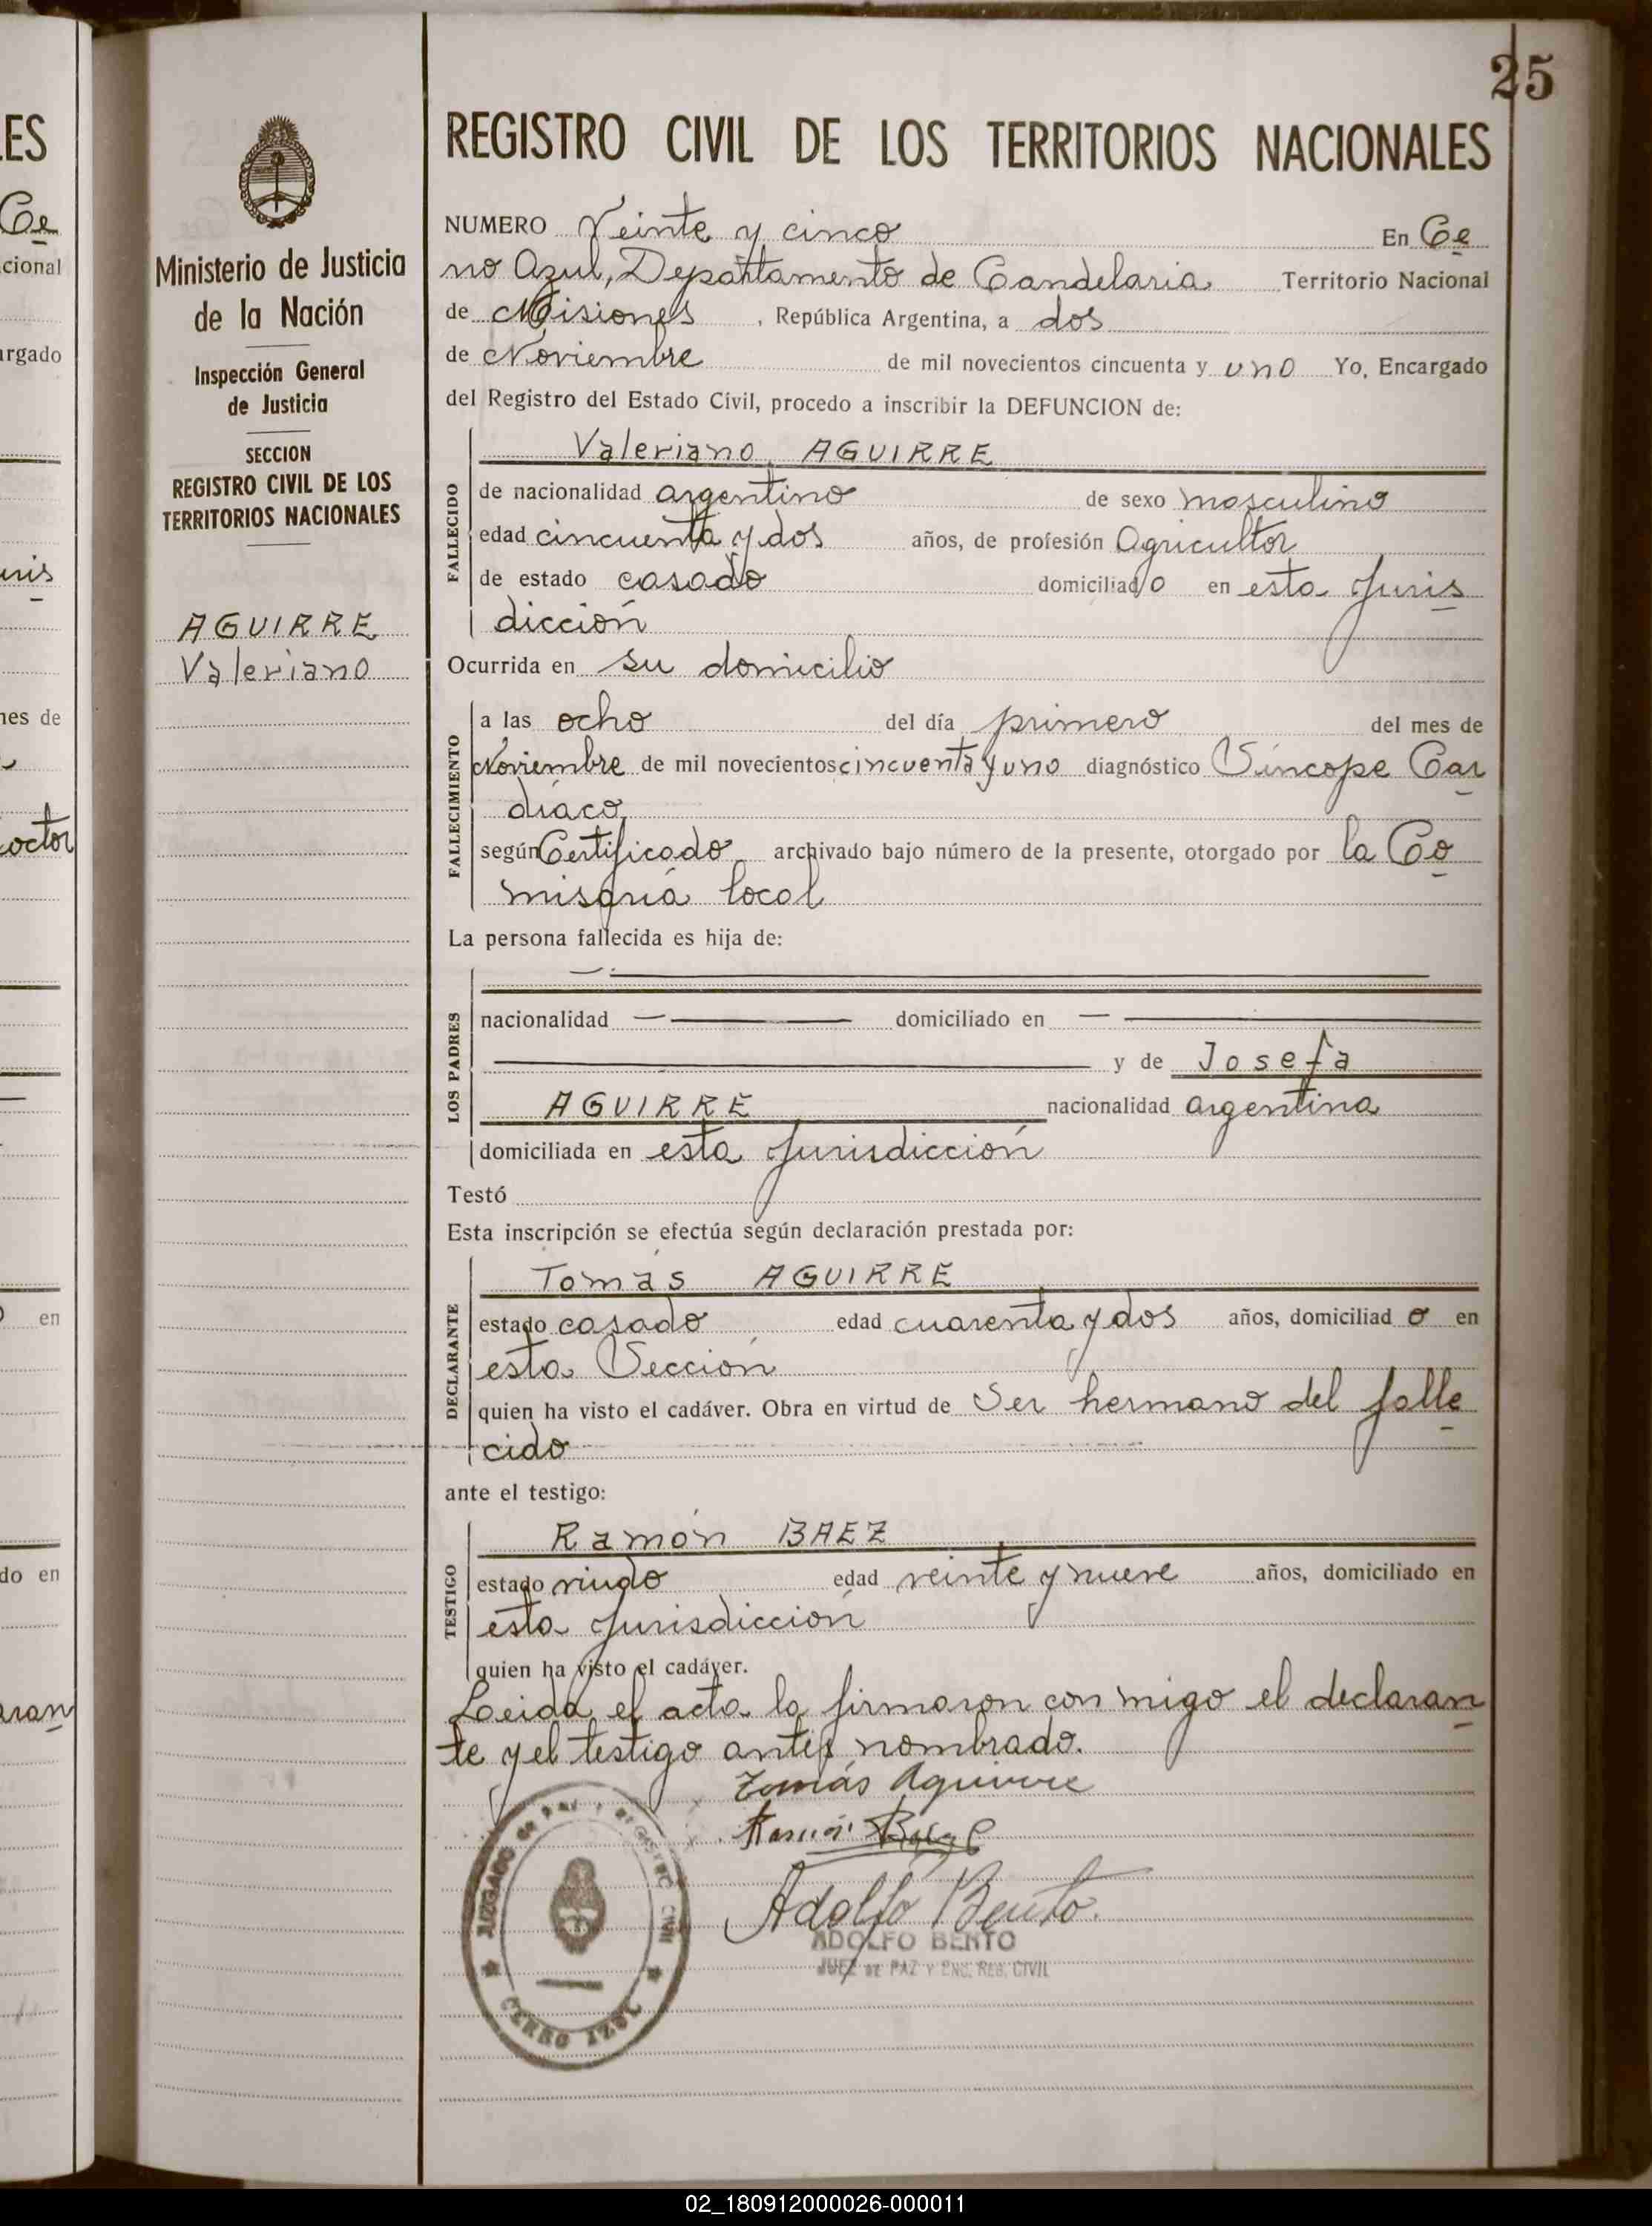 25
REGISTRO CIVIL DE LOS TERRITORIOS NACIONALES
Ministerio de Justicia
de la Nación
Inspección General
de Justicia
SECCION
REGISTRO CIVIL DE LOS
TERRITORIOS NACIONALES
AGUIRRE
Valeriano
NUMERO Veinte y cinco En Ce
rro Azul, Departamento de Candelaria Territorio Nacional
de Misiones, República Argentina, a dos
de Noviembre de mil novecientos cincuenta y uno Yo, Encargado
del Registro del Estado Civil, procedo a inscribir la DEFUNCION de:
Valeriano AGUIRRE
FALLECIDO
de nacionalidad argentino de sexo masculino
edad cincuenta y dos años, de profesión Agricultor
de estado casado domiciliado en esta Juris
dicción
Ocurrida en su domicilio
FALLECIMIENTO
a las ocho del día primero del mes de
Noviembre de mil novecientos cincuenta y uno diagnóstico Síncope Car
díaco
según Certificado archivado bajo número de la presente, otorgado por la Co
misaría local
La persona fallecida es hija de:
LOS PADRES
nacionalidad — domiciliado en —
y de Josefa
AGUIRRE nacionalidad argentina
domiciliada en esta Jurisdicción
Testó
Esta inscripción se efectúa según declaración prestada por:
DECLARANTE
Tomás AGUIRRE
estado casado edad cuarenta y dos años, domiciliado en
esta Sección
quien ha visto el cadáver. Obra en virtud de Ser hermano del falle
cido
ante el testigo:
TESTIGO
Ramón BAEZ
estado viudo edad veinte y nueve años, domiciliado en
esta Jurisdicción
quien ha visto el cadáver.
Leida el acta la firmaron con migo el declaran
te y el testigo antes nombrado.
Tomás Aguirre
Ramón Baez
Adolfo Bento
ADOLFO BENTO
JUEZ DE PAZ Y ENC. REG. CIVIL
JUZGADO de Paz y REGISTRO CIVIL
CERRO AZUL
02_180912000026-000011